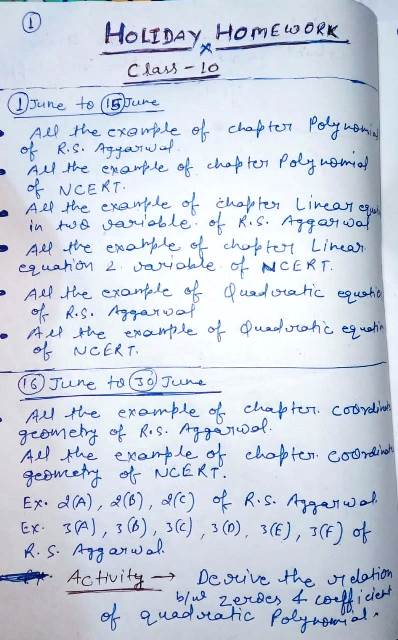 ①
HOLIDAY HOMEWORK
Class - 10
① June to ⑮ June
• All the example of chapter Polynomial
of R.S. Aggarwal.
• All the example of chapter Polynomial
of NCERT.
• All the example of chapter Linear equation
in two variable of R.S. Aggarwal
• All the example of chapter Linear
equation 2 variable of NCERT.
• All the example of Quadratic equatio
of R.S. Aggarwal
• All the example of Quadratic equatio
of NCERT.
⑯ June to ㉚ June
• All the example of chapter. coordinate
geometry of R.S. Aggarwal.
All the example of chapter. coordinate
geometry of NCERT.
Ex. 2(A), 2(B), 2(C) of R.S. Aggarwal.
Ex. 3(A), 3(B), 3(C), 3(D), 3(E), 3(F) of
R.S. Aggarwal.
Activity → Derive the relation
b/w zeroes & coefficient
of quadratic Polynomial.